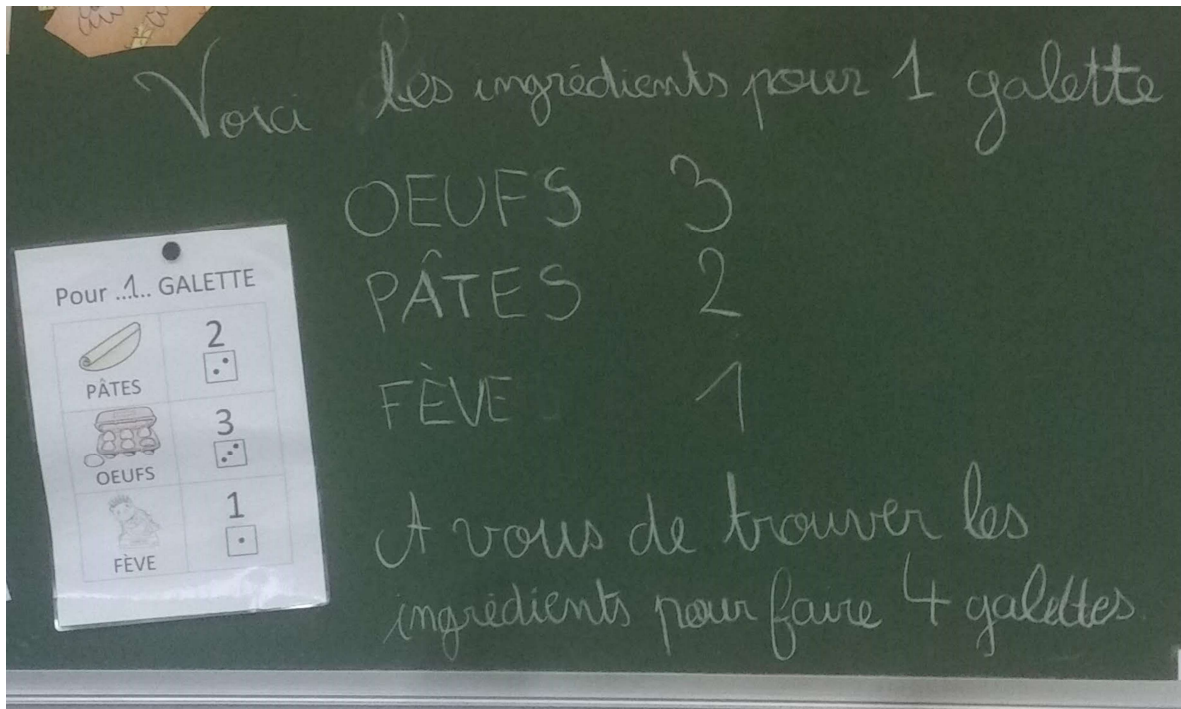 Voici les ingrédients pour 1 galette
OEUFS 3
PÂTES 2
FÈVE 1
A vous de trouver les
ingrédients pour faire 4 galettes.
Pour ...1... GALETTE
PÂTES 2
OEUFS 3
FÈVE 1